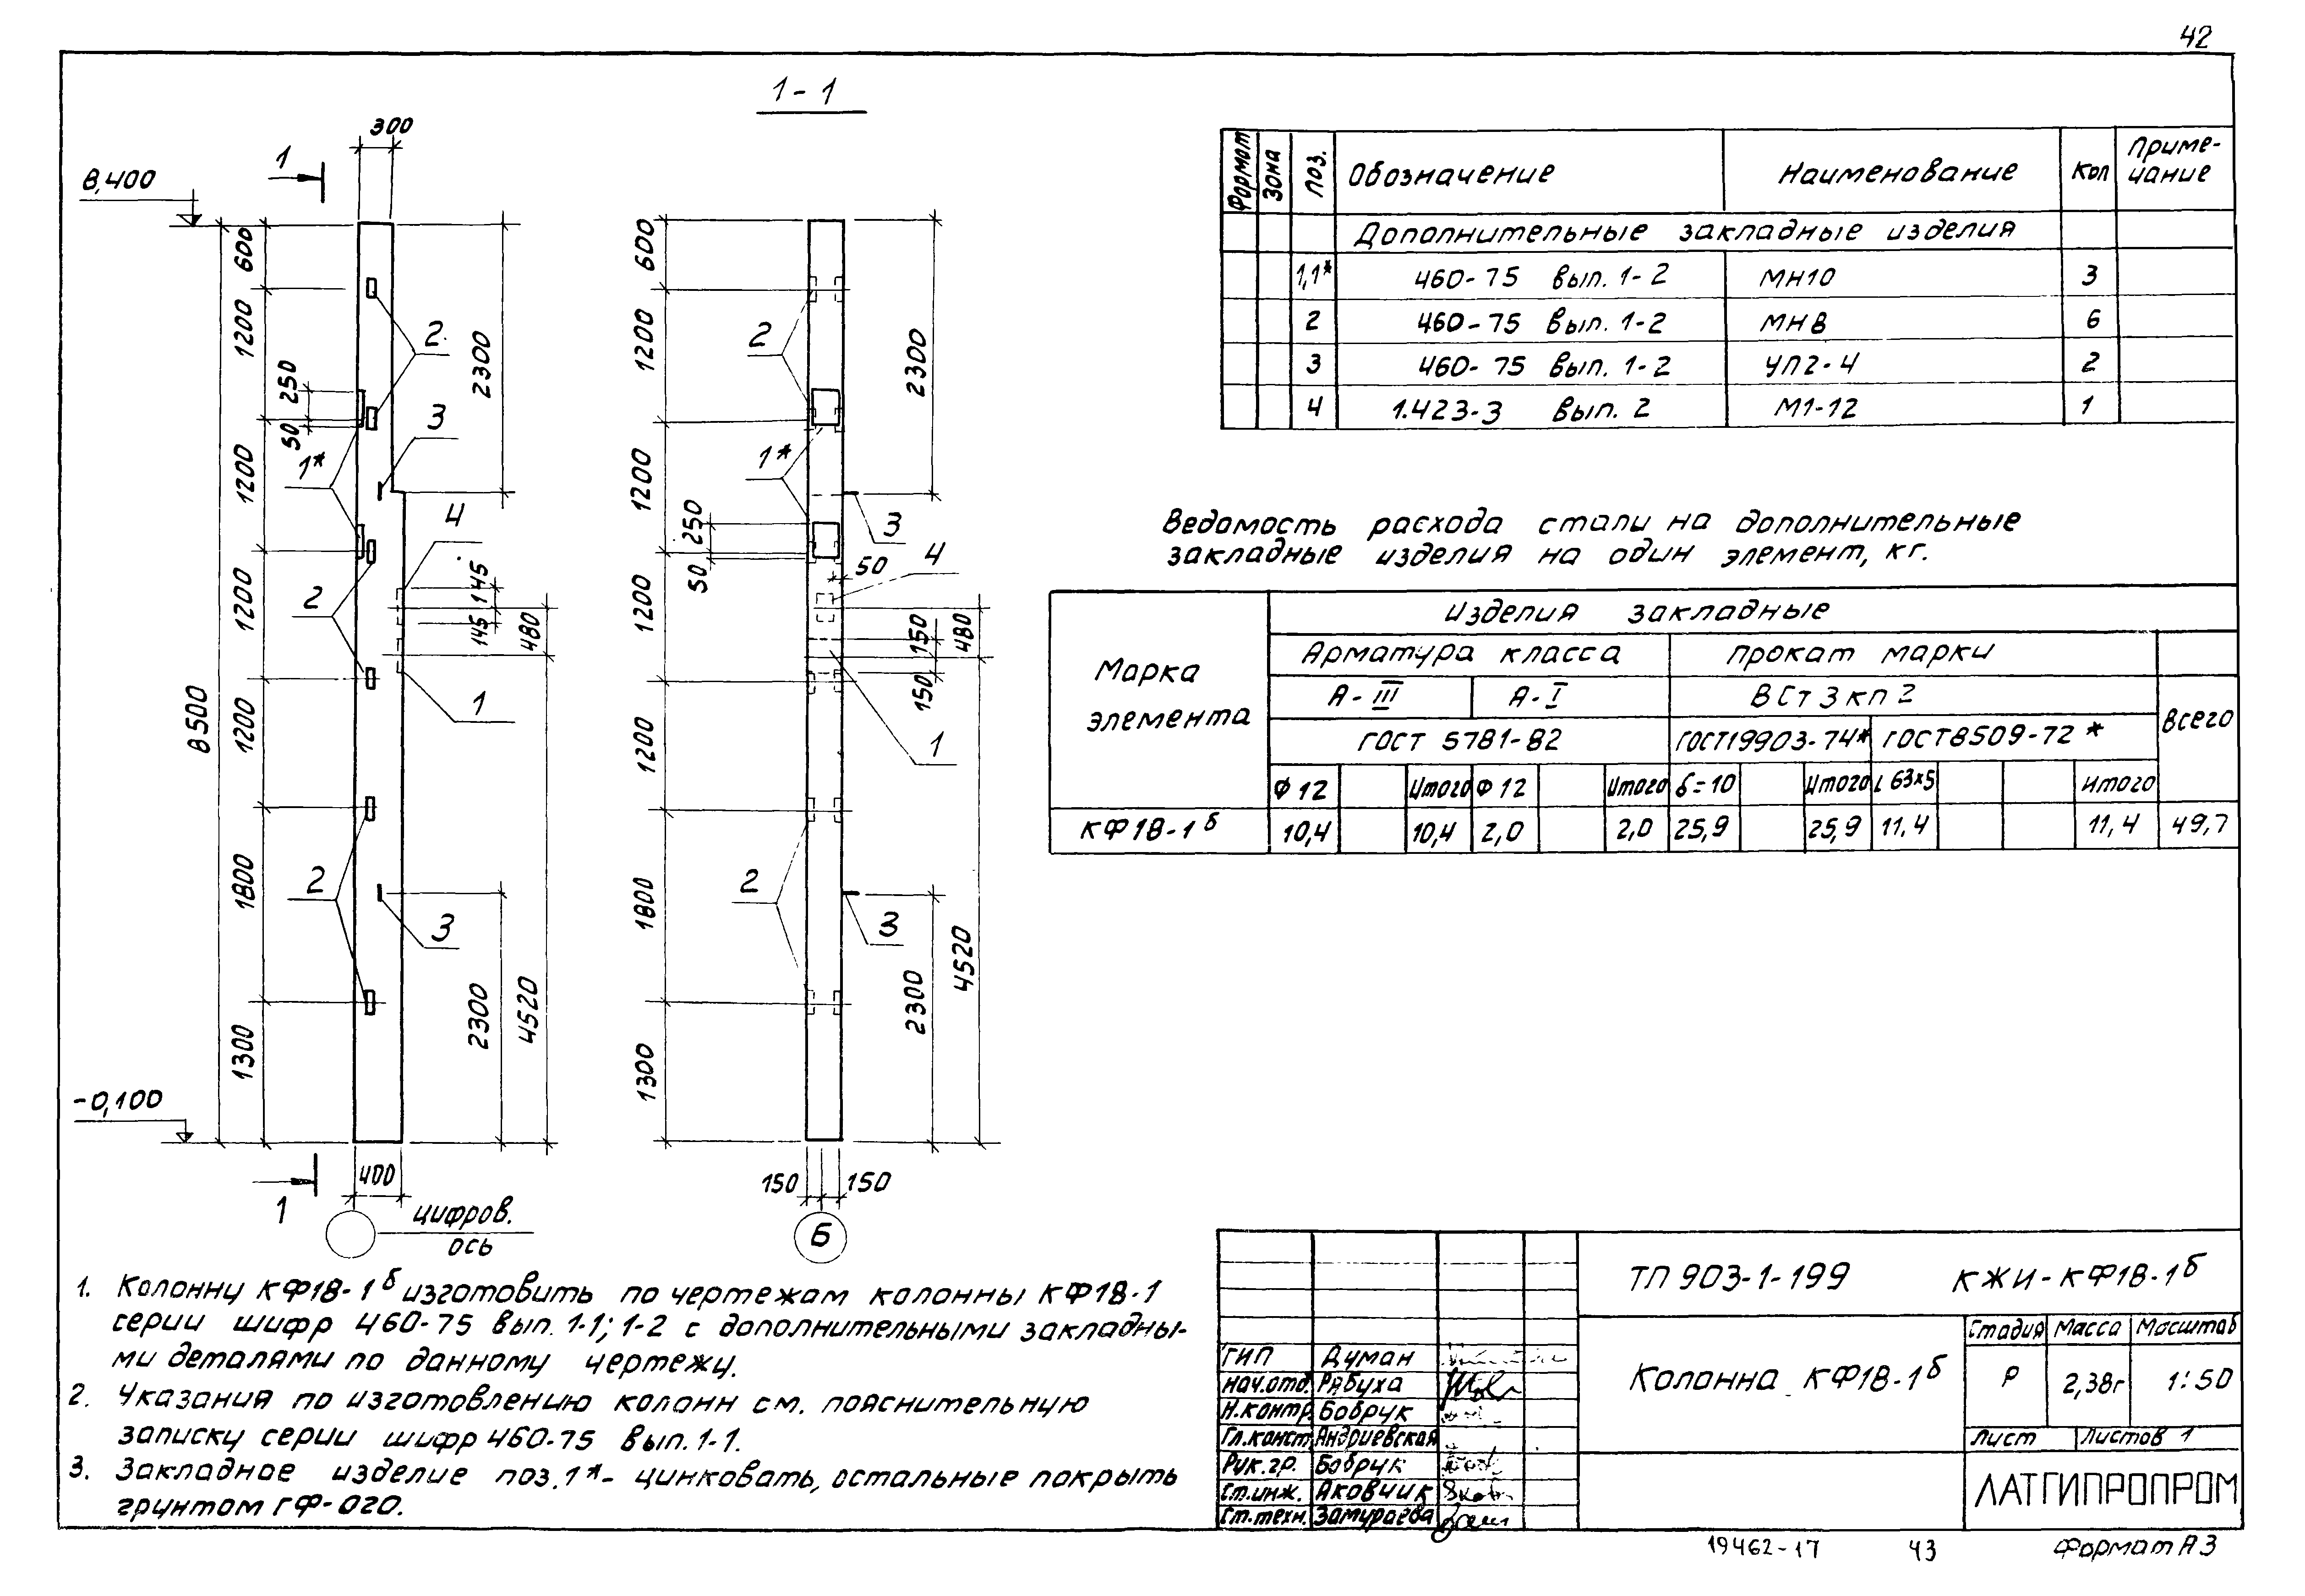 42
1-1
300
1
8,400
600
1200
250
50
1200
1200
1200
1800
1300
8500
2
3
1*
4
2
1
2
3
2300
145
145
480
2300
4520
-0,100
1
400
цифров.
ось
600
1200
1200
250
50
1200
1200
1800
1300
2
1*
2300
3
4
50
150
150
480
1
2
3
2300
4520
150 150
Б
Формат Зона Поз. Обозначение Наименование Кол Приме-
чание
Дополнительные закладные изделия
1,1* 460-75 вып. 1-2 МН10 3
2 460-75 вып. 1-2 МН8 6
3 460-75 вып. 1-2 УП2-4 2
4 1.423-3 вып. 2 М1-12 1
Ведомость расхода стали на дополнительные
закладные изделия на один элемент, кг.
Марка
элемента
Изделия закладные
Арматура класса Прокат марки
А-III А-I ВСт3кп2
Всего
ГОСТ 5781-82 ГОСТ19903-74* ГОСТ8509-72*
Ф12 Итого Ф12 Итого δ=10 Итого L63×5 Итого
КФ18-1б 10,4 10,4 2,0 2,0 25,9 25,9 11,4 11,4 49,7
1. Колонну КФ18-1б изготовить по чертежам колонны КФ18-1
серии шифр 460-75 вып. 1-1; 1-2 с дополнительными закладны-
ми деталями по данному чертежу.
2. Указания по изготовлению колонн см. пояснительную
записку серии шифр 460-75 вып. 1-1.
3. Закладное изделие поз. 1*- цинковать, остальные покрыть
грунтом ГФ-020.
ТП 903-1-199 КЖИ-КФ18-1б
Колонна КФ18-1б
Стадия Масса Масштаб
Р 2,38т 1:50
Лист Листов 1
ЛАТГИПРОПРОМ
ГИП Думан
Нач.отд. Рябуха
Н.контр. Бобрук
Гл.конст. Андриевская
Рук.гр. Бобрук
Ст.инж. Яковчик
Ст.техн. Замураева
19462-17 43 Формат А3